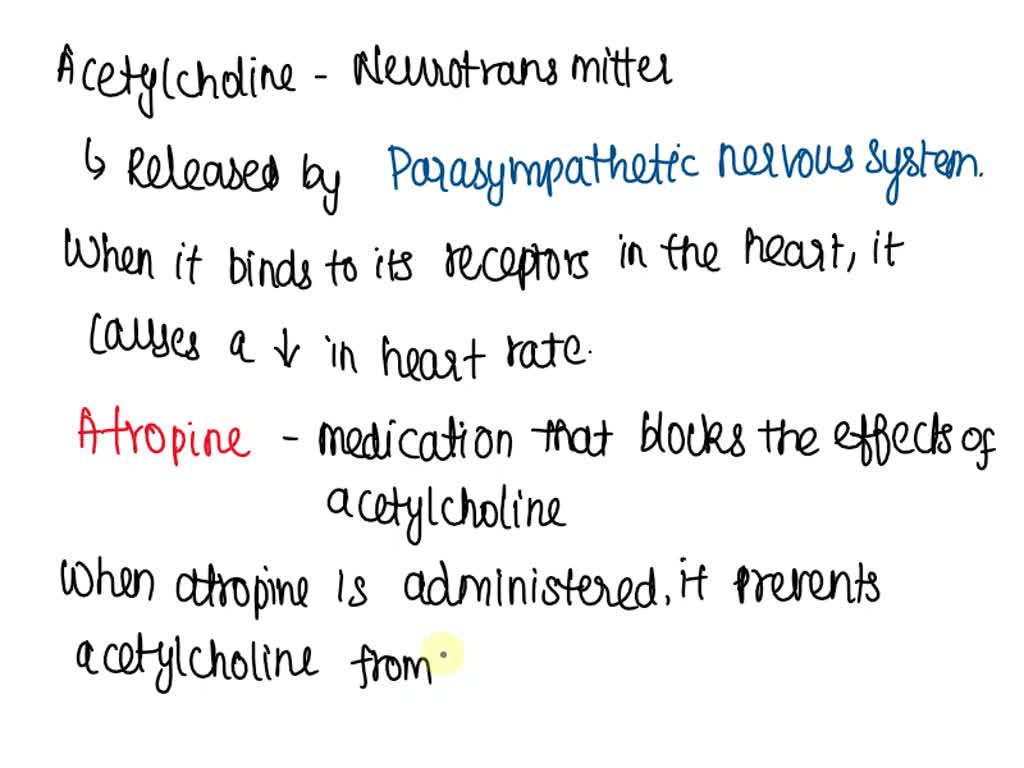 Acetylcholine - Neurotransmitter
↳ Released by Parasympathetic nervous system.
When it binds to its receptors in the heart, it
causes a ↓ in heart rate.
Atropine - medication that blocks the effects of
acetylcholine
When atropine is administered, it prevents
acetylcholine from